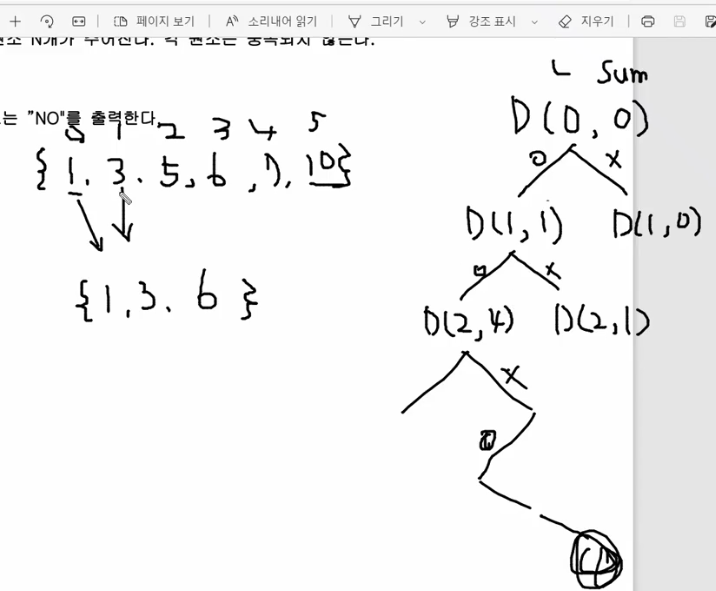 페이지 보기 소리내어 읽기 그리기 강조 표시 지우기
원소 N개가 주어진다. 각 원소는 중복되지 않는다.
는 "NO"를 출력한다.
0 1 2 3 4 5
{ 1, 3, 5, 6, 7, 10}
{1, 3, 6 }
L sum
D(0, 0)
O X
D(1, 1) D(1, 0)
O X
D(2, 4) D(2, 1)
X
O